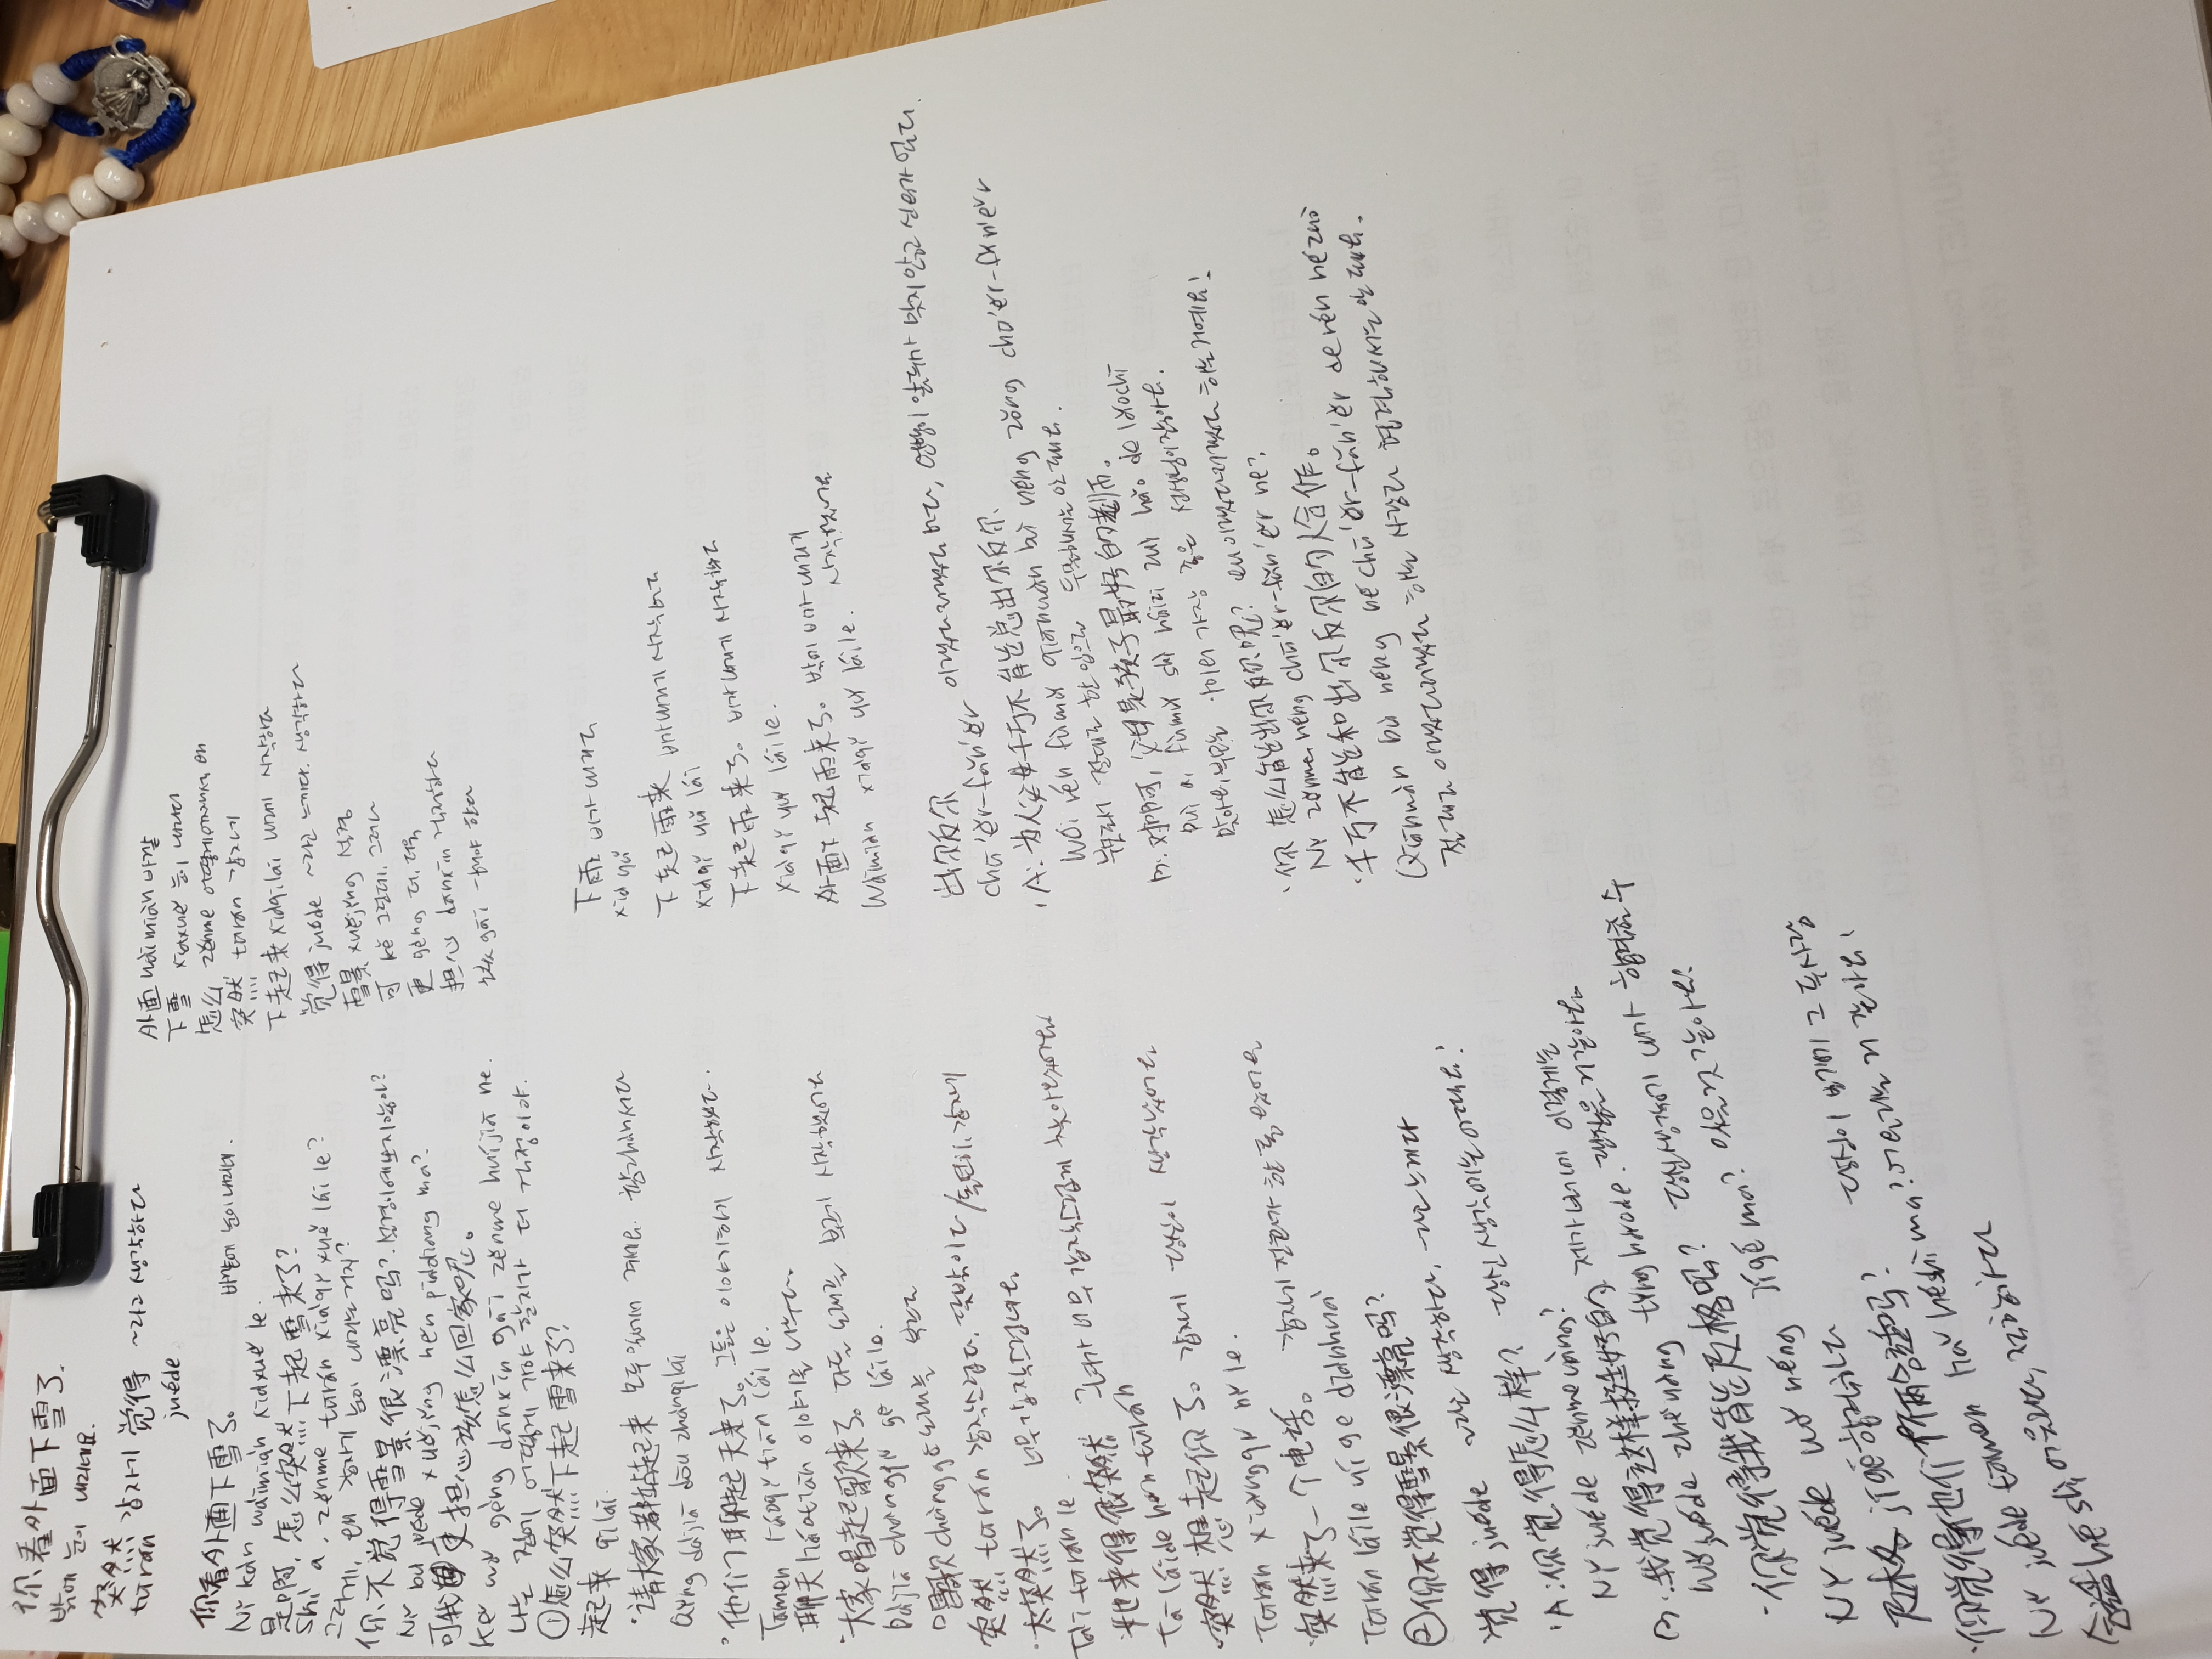 你看外面下雪了.
밖에 눈이 내리네요.
突然 갑자기 觉得 ~라고 생각하다
tūrán juéde
你看外面下雪了。 바깥에 눈이 내리네.
Nǐ kàn wàimiàn xiàxuě le.
是啊, 怎么突然下起雪来了?
Shì a, zěnme tūrán xiàqǐ xuě lái le?
그러게, 왜 갑자기 눈이 내리는거지?
你不觉得雪景很漂亮吗? 설경이 예쁘지않아?
Nǐ bù juéde xuějǐng hěn piàoliang ma?
可我更担心该怎么回家呢。
Kě wǒ gèng dānxīn gāi zěnme huíjiā ne.
나는 집에 어떻게 가야 할지가 더 걱정이야.
①怎么突然下起雪来了?
起来 qǐlái.
·请大家都站起来 모두 일어나 주세요.
Qǐng dàjiā dōu zhànqǐlái
·他们聊起天来了。 그들은 이야기하기 시작했다.
Tāmen liáoqǐ tiān lái le.
聊天 liáotiān 이야기를 나누다.
·大家唱起歌来了。 다들 노래를 부르기 시작했어요
Dàjiā chàngqǐ gē láile.
唱歌 chànggē 노래를 부르다
突然 tūrán 갑작스럽다, 뜻밖이다/돌연히, 갑자기
·太突然了。 너무 갑작스럽네요
Tài tūrán le.
·她来得很突然 그녀가 너무 갑작스럽게 찾아왔어요
Tā láide hěn tūrán
·突然想起你了。 갑자기 당신이 생각났어요
Tūrán xiǎngqǐ nǐ le.
·突然来了一个电话。 갑자기 전화가 한 통 왔어요
Tūrán láile yí ge diànhuà
②你不觉得雪景很漂亮吗?
觉得 juéde ~라고 생각하다, ~라고 느끼다
·A: 你觉得怎么样? 당신 생각에는 어때요?
Nǐ juéde zěnmeyàng?
B: 我觉得这样挺好的 제가 보기에 이렇게는
Wǒ juéde zhèyàng tǐng hǎode. 괜찮을 거 같아요.
·你觉得我能及格吗? 당신 생각에 내가 합격할 수
Nǐ juéde wǒ néng jígé ma? 있을 것 같아요?
及格 jígé 합격하다
·你觉得他们俩合适吗? 당신이 보기에 그 두사람
Nǐ juéde tāmen liǎ héshì ma? 어울리는 거 같아요?
合适 héshì, 어울리다, 적합하다
外面 wàimiàn 바깥
下雪 xiàxuě 눈이 내리다
怎么 zěnme 어떻게, 어째서, 왜
突然 tūrán 갑자기
下起来 xiàqǐlái 내리기 시작하다
觉得 juéde ~라고 느끼다. 생각하다
雪景 xuějǐng 설경
可 kě 그런데, 그러나
更 gèng 더, 더욱
担心 dānxīn 걱정하다
该 gāi ~해야 한다
下雨 비가 내리다
xià yǔ
下起雨来 비가 내리기 시작하다
xiàqǐ yǔ lái
下起雨来了。 비가 내리기 시작했다
xiàqǐ yǔ láile.
外面下起雨来了。 밖에 비가 내리기
Wàimiàn xiàqǐ yǔ láile. 시작했어요
出尔反尔
chū'ěr-fǎn'ěr 이랬다저랬다 하다, 언행이 앞뒤가 맞지 않고 신의가 없다.
·A: 为人父母千万不能总出尔反尔.
Wéi rén fùmǔ qiānwàn bù néng zǒng chū'ěr-fǎn'ěr
부모로서 절대로 한 입으로 두말해서는 안 돼요.
B: 对啊, 父母是孩子最好的老师。
Duì a, fùmǔ shì háizi zuì hǎo de lǎoshī
맞아요, 부모는 아이의 가장 좋은 선생님이잖아요.
·你怎么能出尔反尔呢? 왜 이랬다저랬다 하는거예요!
Nǐ zěnme néng chū'ěr-fǎn'ěr ne?
·千万不能和出尔反尔的人合作。
Qiānwàn bù néng hé chū'ěr-fǎn'ěr de rén hézuò
절대로 이랬다저랬다 하는 사람과 협력해서는 안 돼요.